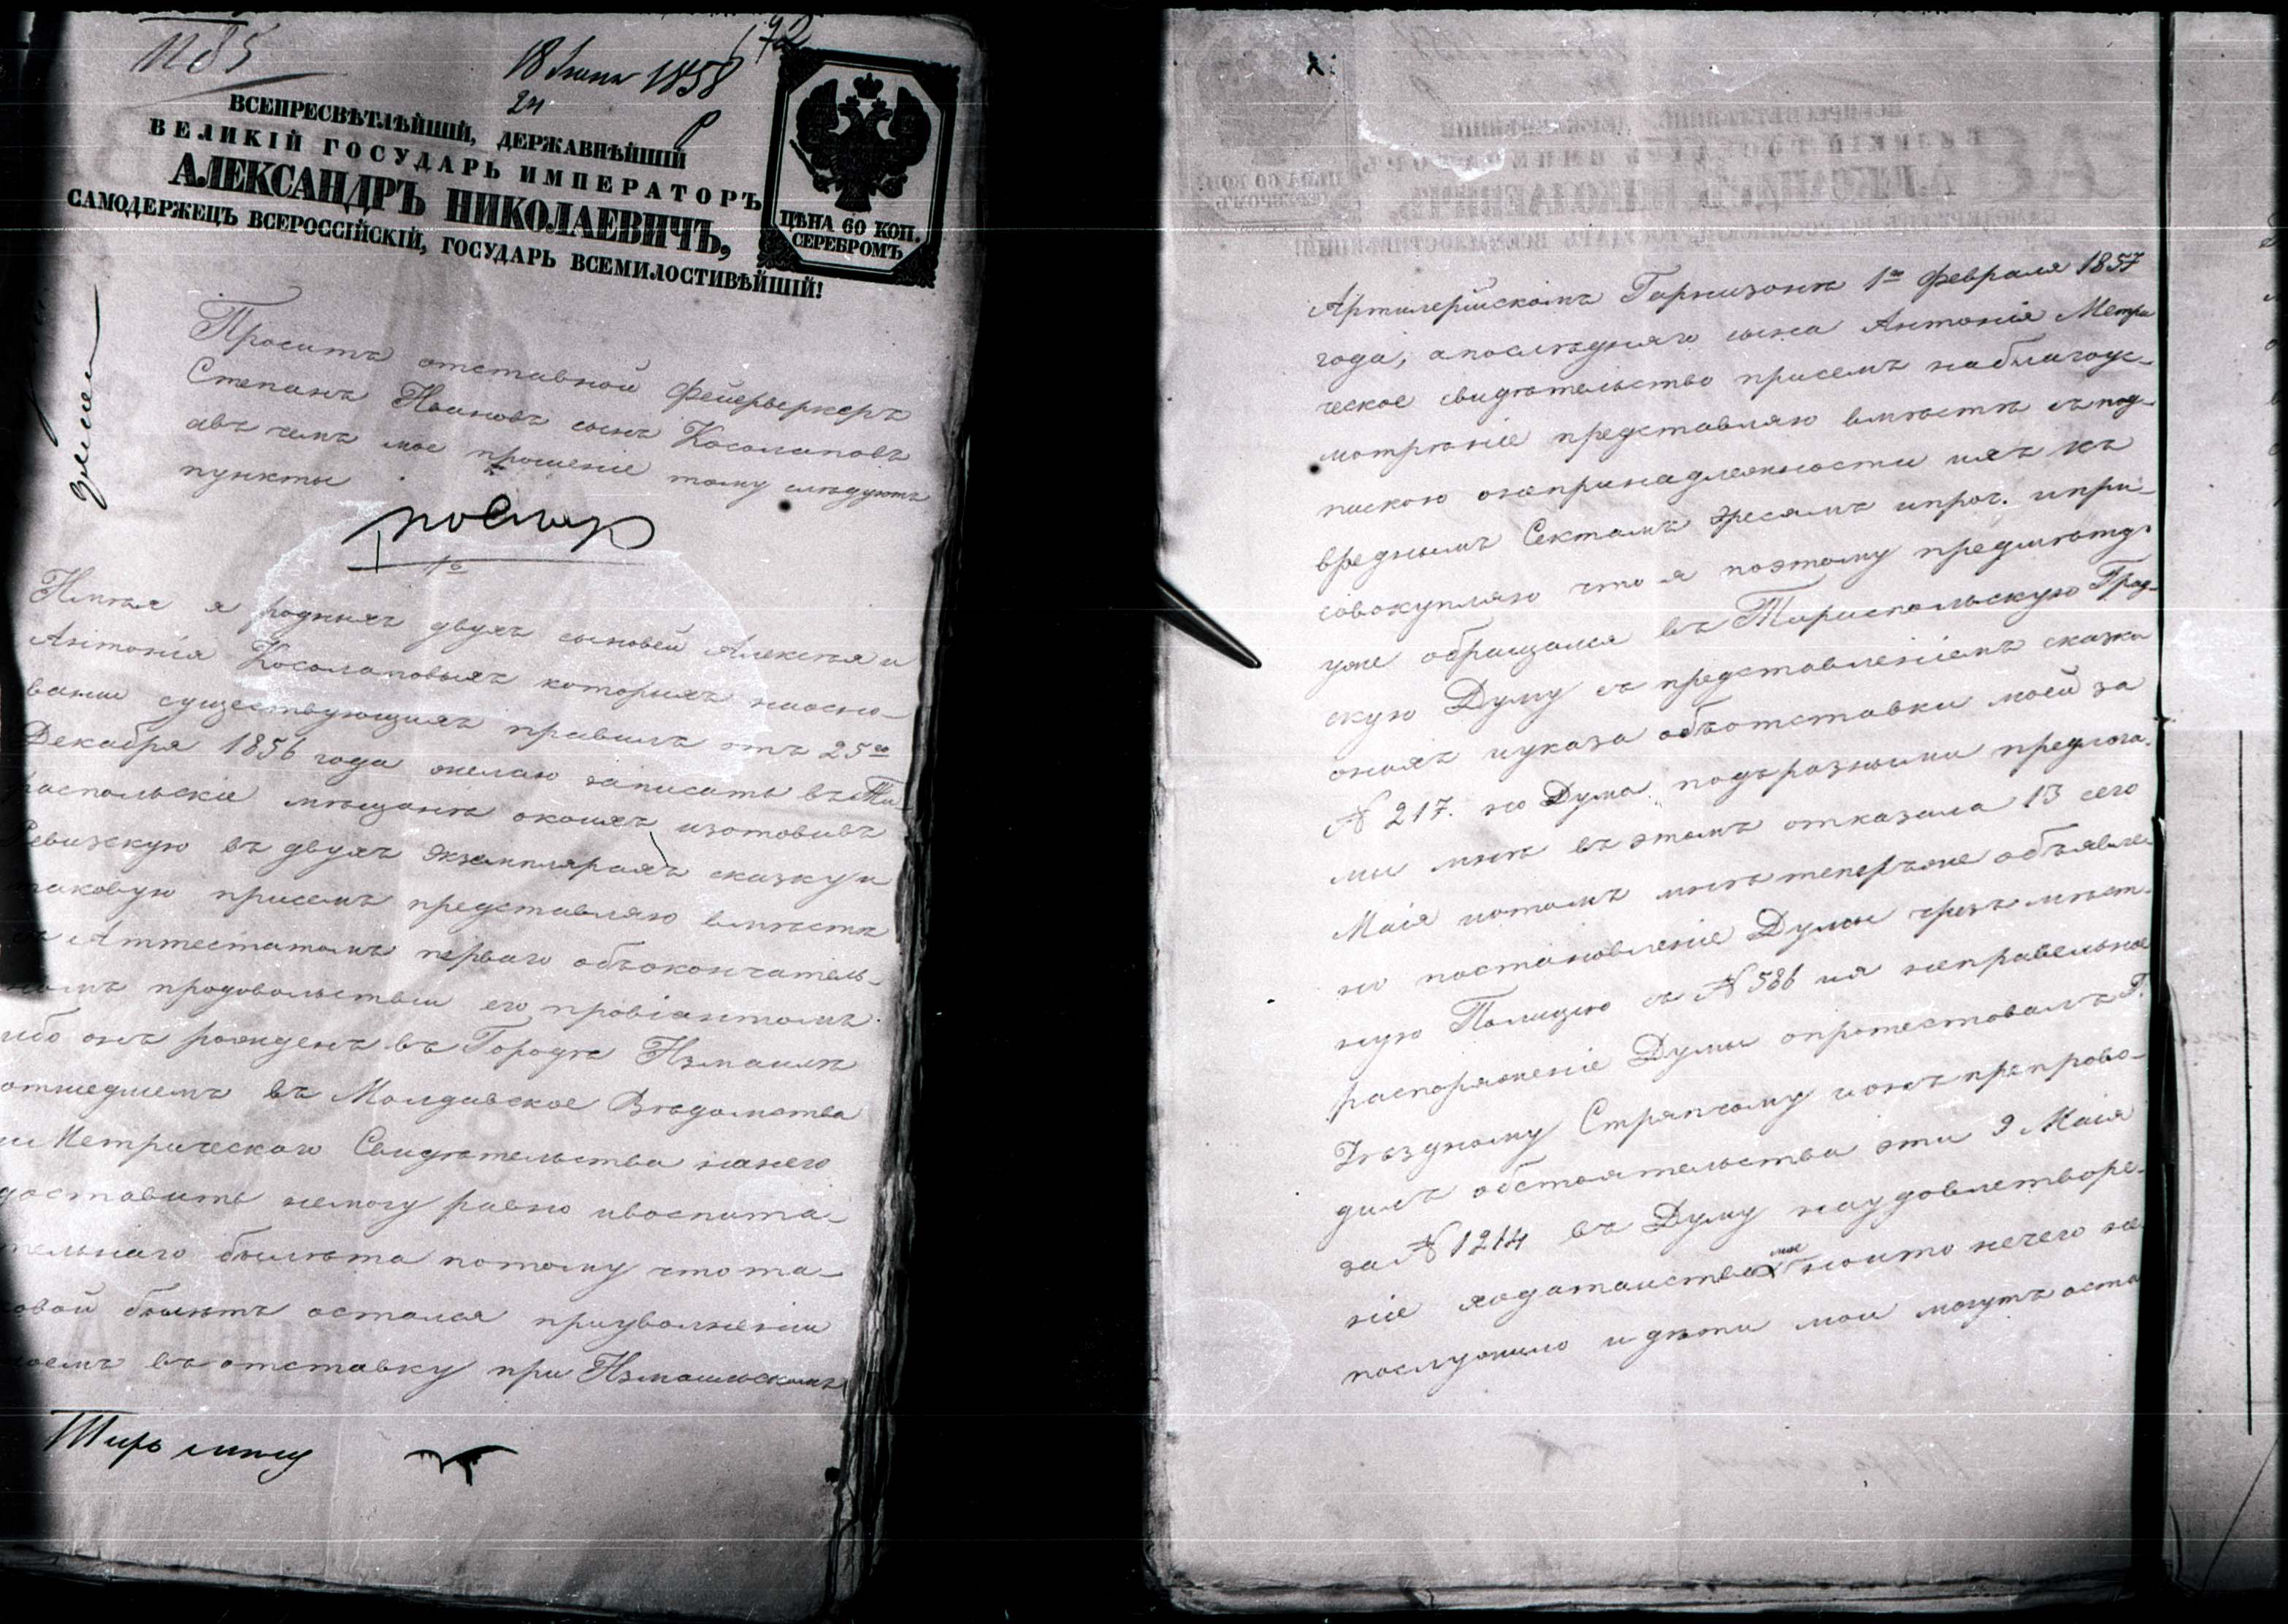 1185
18 Іюня 1858
24
172
ВСЕПРЕСВѢТЛѢЙШІЙ, ДЕРЖАВНѢЙШІЙ
ВЕЛИКІЙ ГОСУДАРЬ ИМПЕРАТОРЪ
АЛЕКСАНДРЪ НИКОЛАЕВИЧЪ,
САМОДЕРЖЕЦЪ ВСЕРОССІЙСКІЙ, ГОСУДАРЬ ВСЕМИЛОСТИВѢЙШІЙ!
ЦѢНА 60 КОП.
СЕРЕБРОМЪ
Проситъ отставной фейерверкеръ
Степанъ Ивановъ сынъ Косолаповъ
авъ чемъ мое прошеніе тому слѣдуютъ
пункты
1е
Имѣя я родныхъ двухъ сыновей Алексѣя и
Антонія Косолаповыхъ которыхъ наосно-
ваніи существующихъ правилъ отъ 25го
Декабря 1856 года желаю записать въ Ти-
распольскіе мѣщане окоихъ изготовивъ
Ревизскую въ двухъ экземплярахъ сказку и
таковую присемъ представляю вмѣстѣ
съ Аттестатомъ перваго обокончатель-
номъ продовольствіи его провіантомъ.
ибо онъ рожденъ въ Городѣ Измаилѣ
отшедшемъ въ Молдавское Вѣдомства
и Метрическаго Свидѣтельства нанего
доставить немогу равно ивоспита-
тельнаго билета потому что та-
ковой билетъ остался приувольненіи
моемъ въ отставку при Измаильскомъ
Артилерійскомъ Гарнизонѣ 1го Февраля 1857
года, апослѣдняго сына Антонія Метри
ческое свидѣтельство присемъ наблагоус-
мотрѣніе представляю вмѣстѣ съ под-
пискою онепринадлежности ихъ къ
вреднымъ Сектамъ Эресямъ ипроч. ипри-
совокупляю что я поэтому предмѣту
уже обращался въ Тираспольскую Град-
скую Думу съ представленіемъ сказки
оныхъ иуказа обѣотставки моей за
№ 217. но Дума подъ разными предлога-
ми мнѣ въ этомъ отказала 13 сего
Маія ипотомъ мнѣ теперь же объявле
но постановленіе Думы чрезъ мѣст-
ную Полицію съ № 586 ия неправельное
распоряженіе Думы опротестовалъ Г.
Уѣздному Стряпчему ионъ препрово-
дилъ обстоятельства эти 9 Маія
за № 1214 въ Думу наудовлетворе-
ніе ходатайства мое ноито нечего не
послужило и дѣти мои могутъ оста